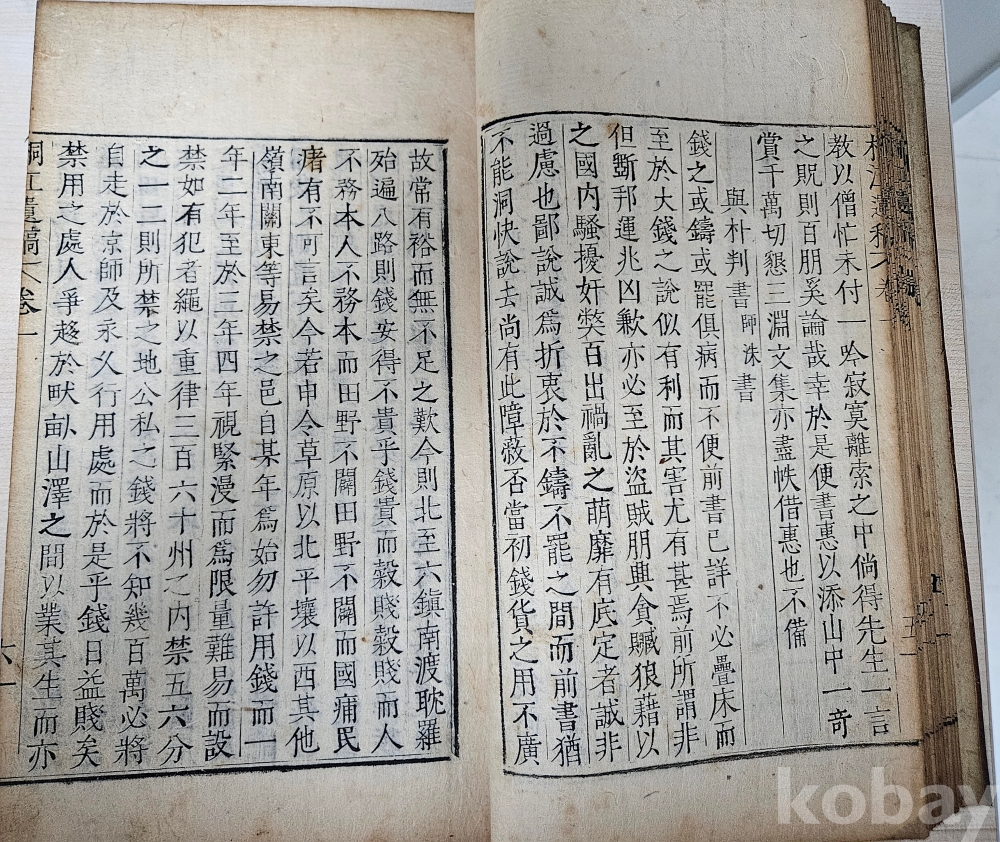 教以僧忙未付一吟寂寞離索之中倘得先生一言
之貺則百朋奚論哉幸於是便書惠以添山中一奇
賞千萬切懇三淵文集亦盡帙借惠也不備
與朴判書師洙書
錢之或鑄或罷俱病而不便前書已詳不必疊床而
至於大錢之說似有利而其害尤有甚焉前所謂非
但斷邦運兆凶歉亦必至於盜賊朋興貪贓狼藉以
之國内騷擾奸弊百出禍亂之萌靡有底定者誠非
過慮也鄙說誠爲折衷於不鑄不罷之間而前書猶
不能洞快說去尚有此障蔽否當初錢貨之用不廣
故常有裕而無不足之歎今則北至六鎭南渡耽羅
殆遍八路則錢安得不貴乎錢貴而穀賤穀賤而人
不務本人不務本而田野不闢田野不闢而國痡民
瘏有不可言矣今若申令草原以北平壤以西其他
嶺南關東等易禁之邑自某年爲始勿許用錢而一
年二年至於三年四年視緊漫而爲限量難易而設
禁如有犯者繩以重律三百六十州之内禁五六分
之一二則所禁之地公私之錢將不知幾百萬必將
自走於京師及永乂行用處而於是乎錢日益賤矣
禁用之處人爭趍於畎畒山澤之間以業其生而亦
桐江遺稿 卷一 六
kobay